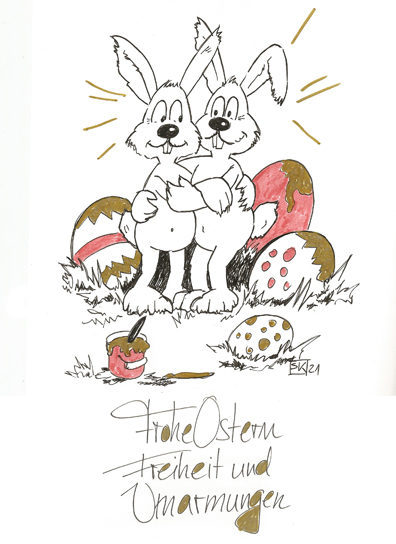 SK 21
Frohe Ostern
Freiheit und
Umarmungen